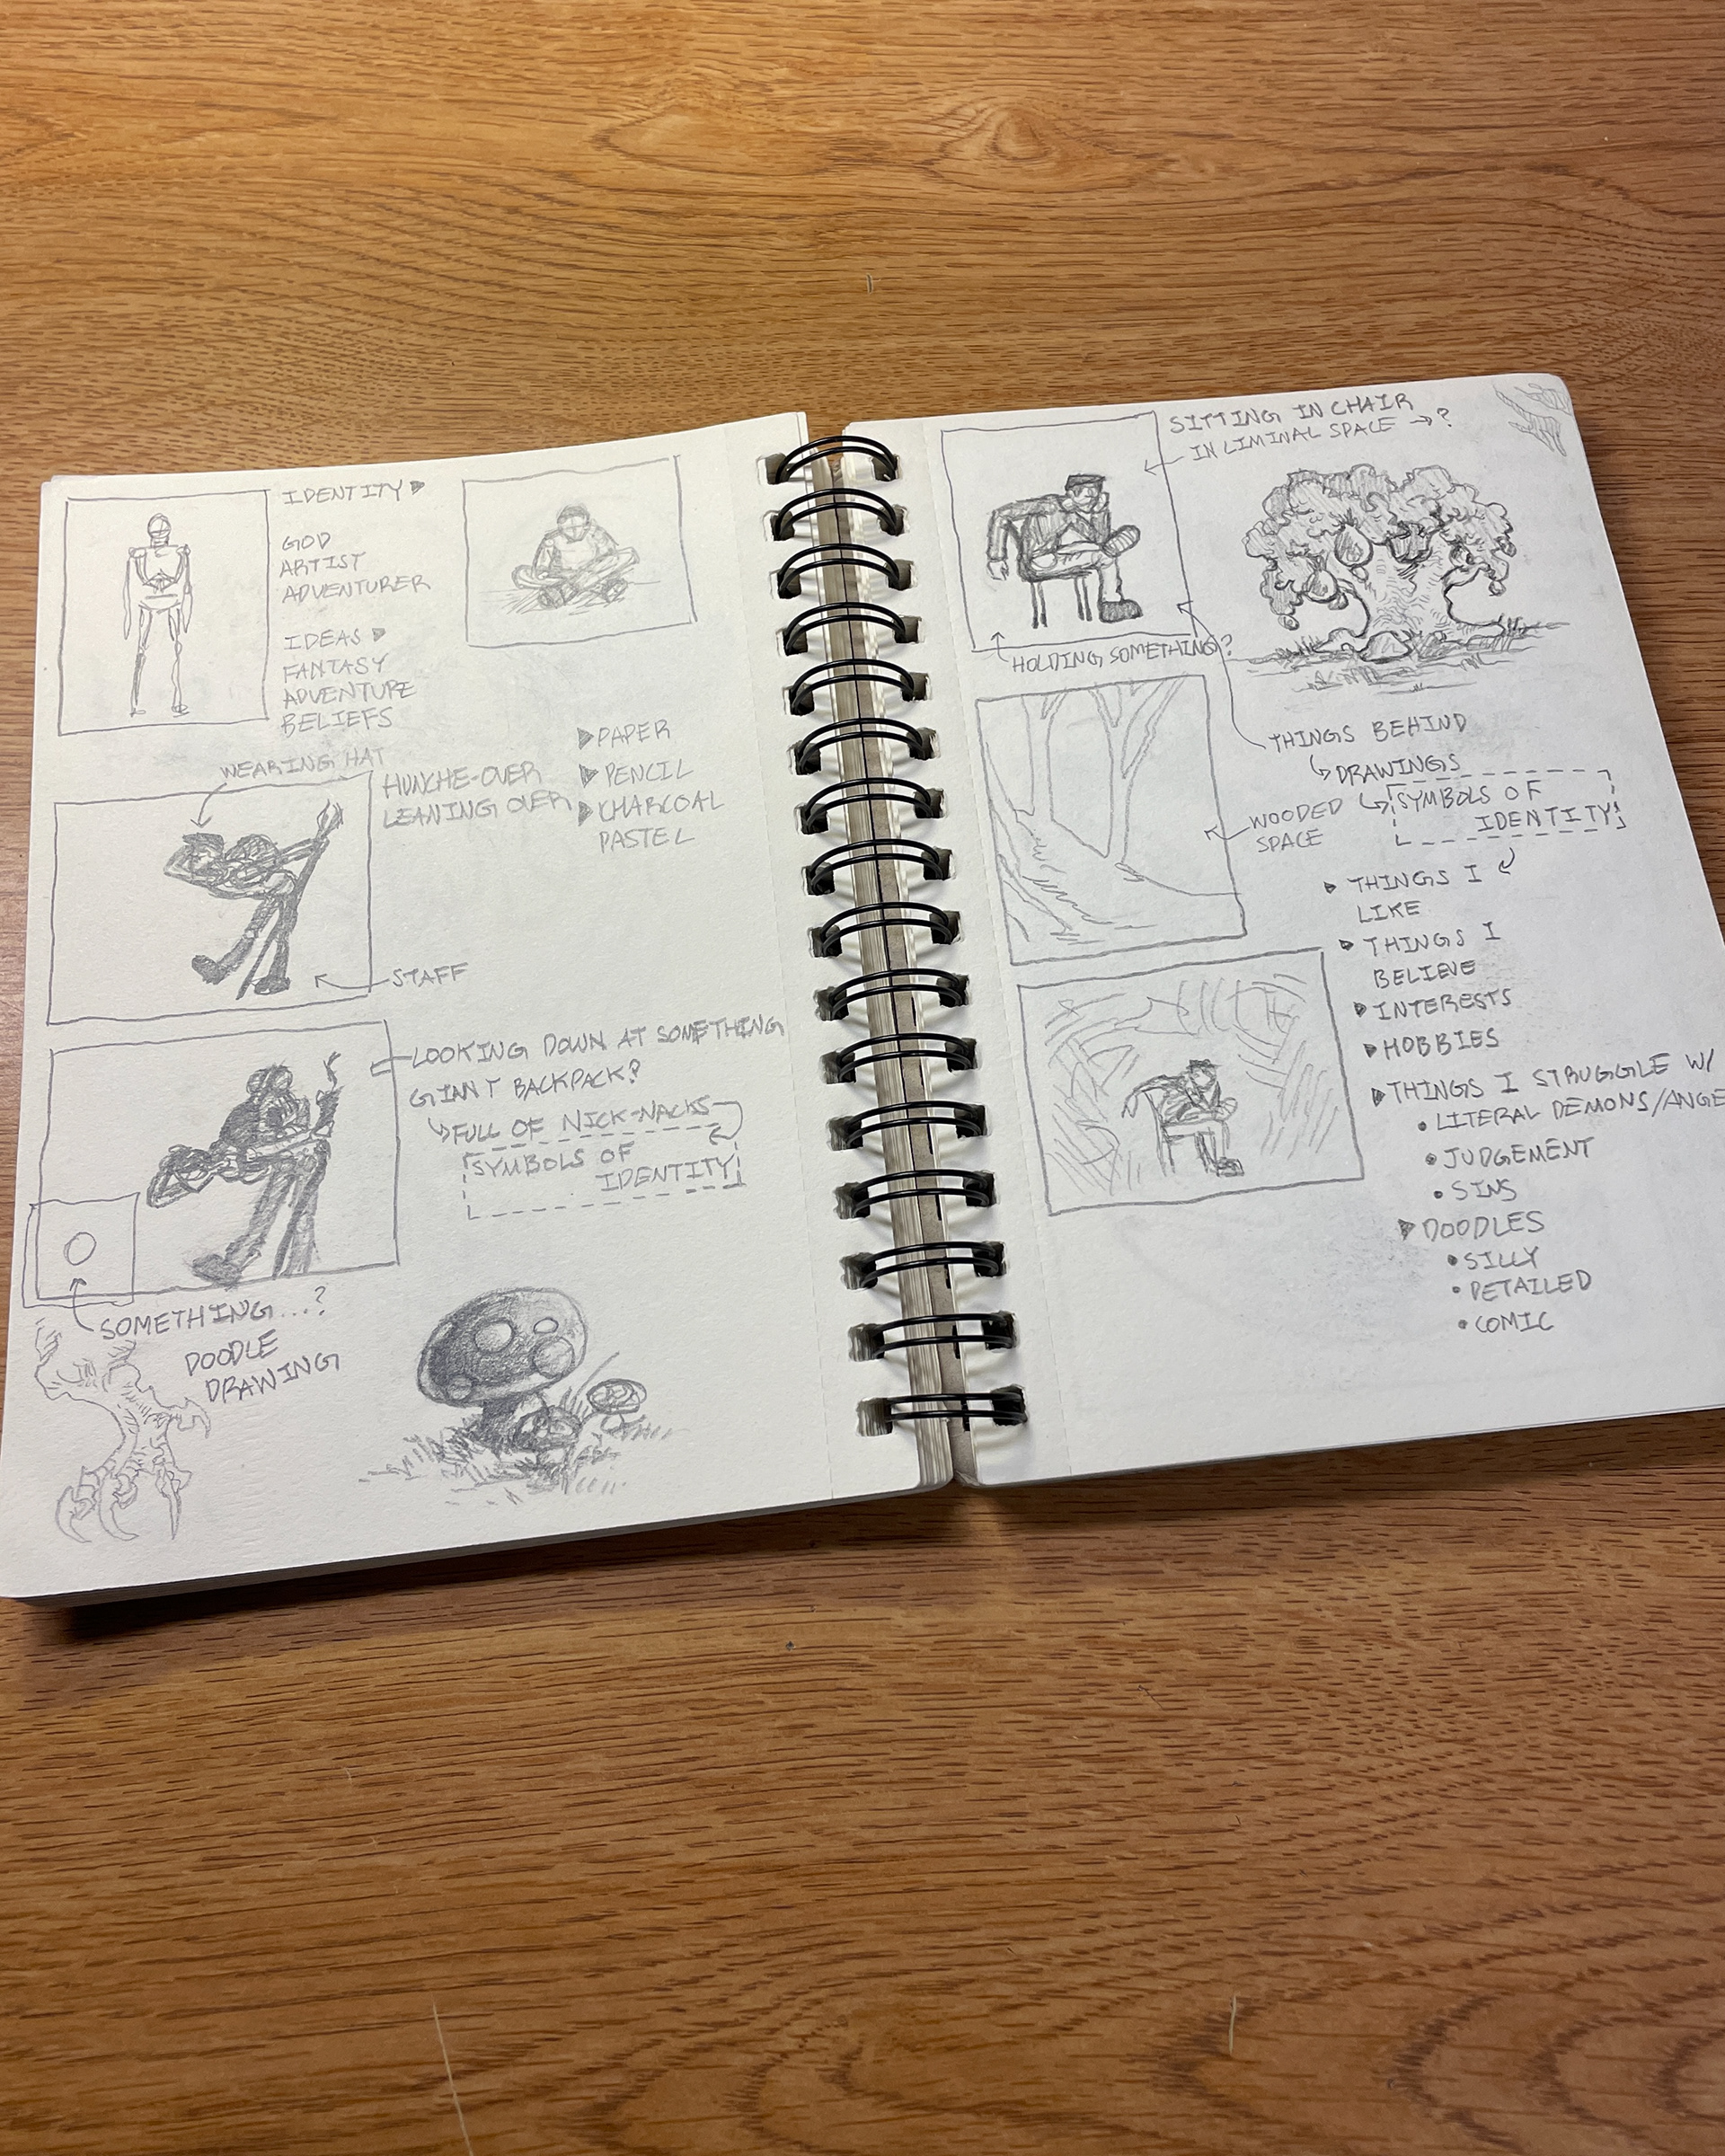 IDENTITY
GOD
ARTIST
ADVENTURER
IDEAS
FANTASY
ADVENTURE
BELIEFS
WEARING HAT
HUNCHE-OVER
LEANING OVER
PAPER
PENCIL
CHARCOAL
PASTEL
STAFF
LOOKING DOWN AT SOMETHING
GIANT BACKPACK?
FULL OF NICK-NACKS
SYMBOLS OF
IDENTITY
SOMETHING...?
DOODLE
DRAWING
SITTING IN CHAIR
IN LIMINAL SPACE → ?
HOLDING SOMETHING?
THINGS BEHIND
DRAWINGS
SYMBOLS OF
IDENTITY
WOODED
SPACE
THINGS I
LIKE
THINGS I
BELIEVE
INTERESTS
HOBBIES
THINGS I STRUGGLE W/
LITERAL DEMONS/ANGE
JUDGEMENT
SINS
DOODLES
SILLY
DETAILED
COMIC